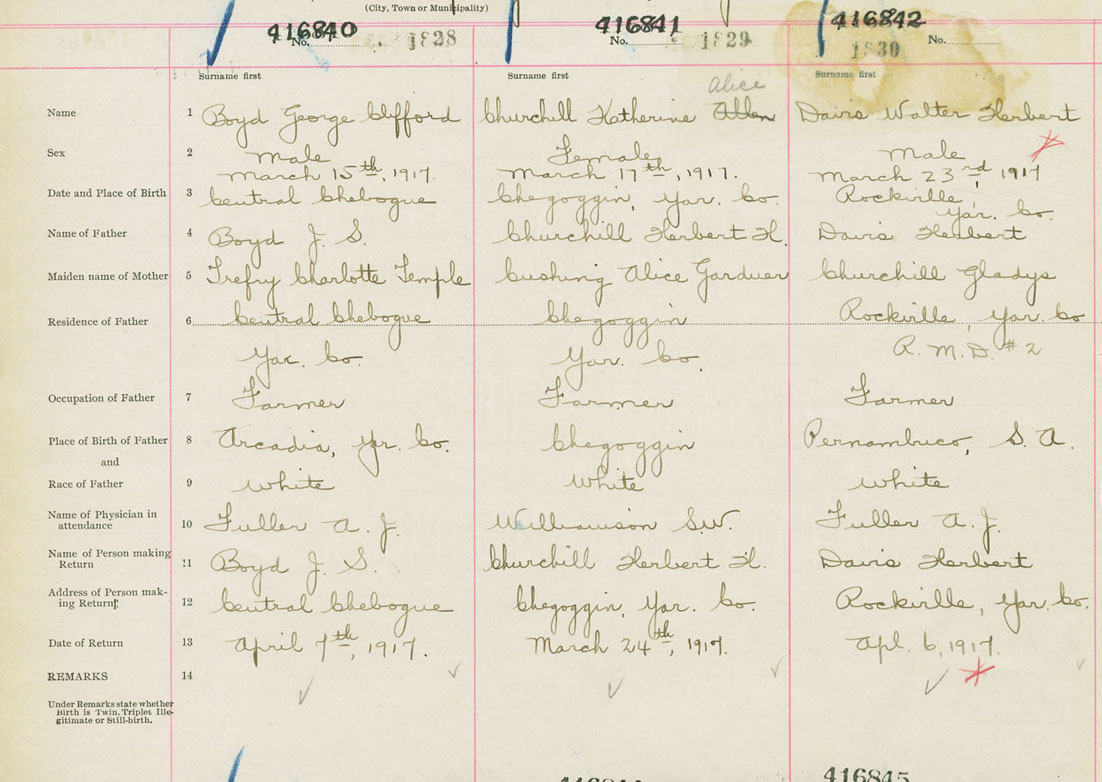 (City, Town or Municipality)
416840 416841 416842
No. 1828 No. 1829 1830 No.
Surname first Surname first Surname first
Alice
Name 1 Boyd George Clifford Churchill Katherine Allen Davis Walter Herbert
Sex 2 Male Female Male
March 15th, 1917. March 17th, 1917. March 23rd, 1917
Date and Place of Birth 3 Central Chebogue Chegoggin, Yar. Co. Rockville, Yar. Co.
Name of Father 4 Boyd J. S. Churchill Herbert H. Davis Herbert
Maiden name of Mother 5 Trefry Charlotte Temple Cushing Alice Gardner Churchill Gladys
Residence of Father 6 Central Chebogue Chegoggin Rockville, Yar. Co
Yar. Co. Yar. Co. R. M. D. #2
Occupation of Father 7 Farmer Farmer Farmer
Place of Birth of Father 8 Arcadia, Yar. Co. Chegoggin Pernambuco, S. A.
and
Race of Father 9 White White White
Name of Physician in attendance 10 Fuller A. J. Williamson S.W. Fuller A. J.
Name of Person making Return 11 Boyd J. S. Churchill Herbert H. Davis Herbert
Address of Person mak-ing Return 12 Central Chebogue Chegoggin, Yar. Co. Rockville, Yar. Co.
Date of Return 13 April 7th, 1917. March 24th, 1917. Apl. 6, 1917.
REMARKS 14
Under Remarks state whether
Birth is Twin, Triplet, Ille-
gitimate or Still-birth.
416845